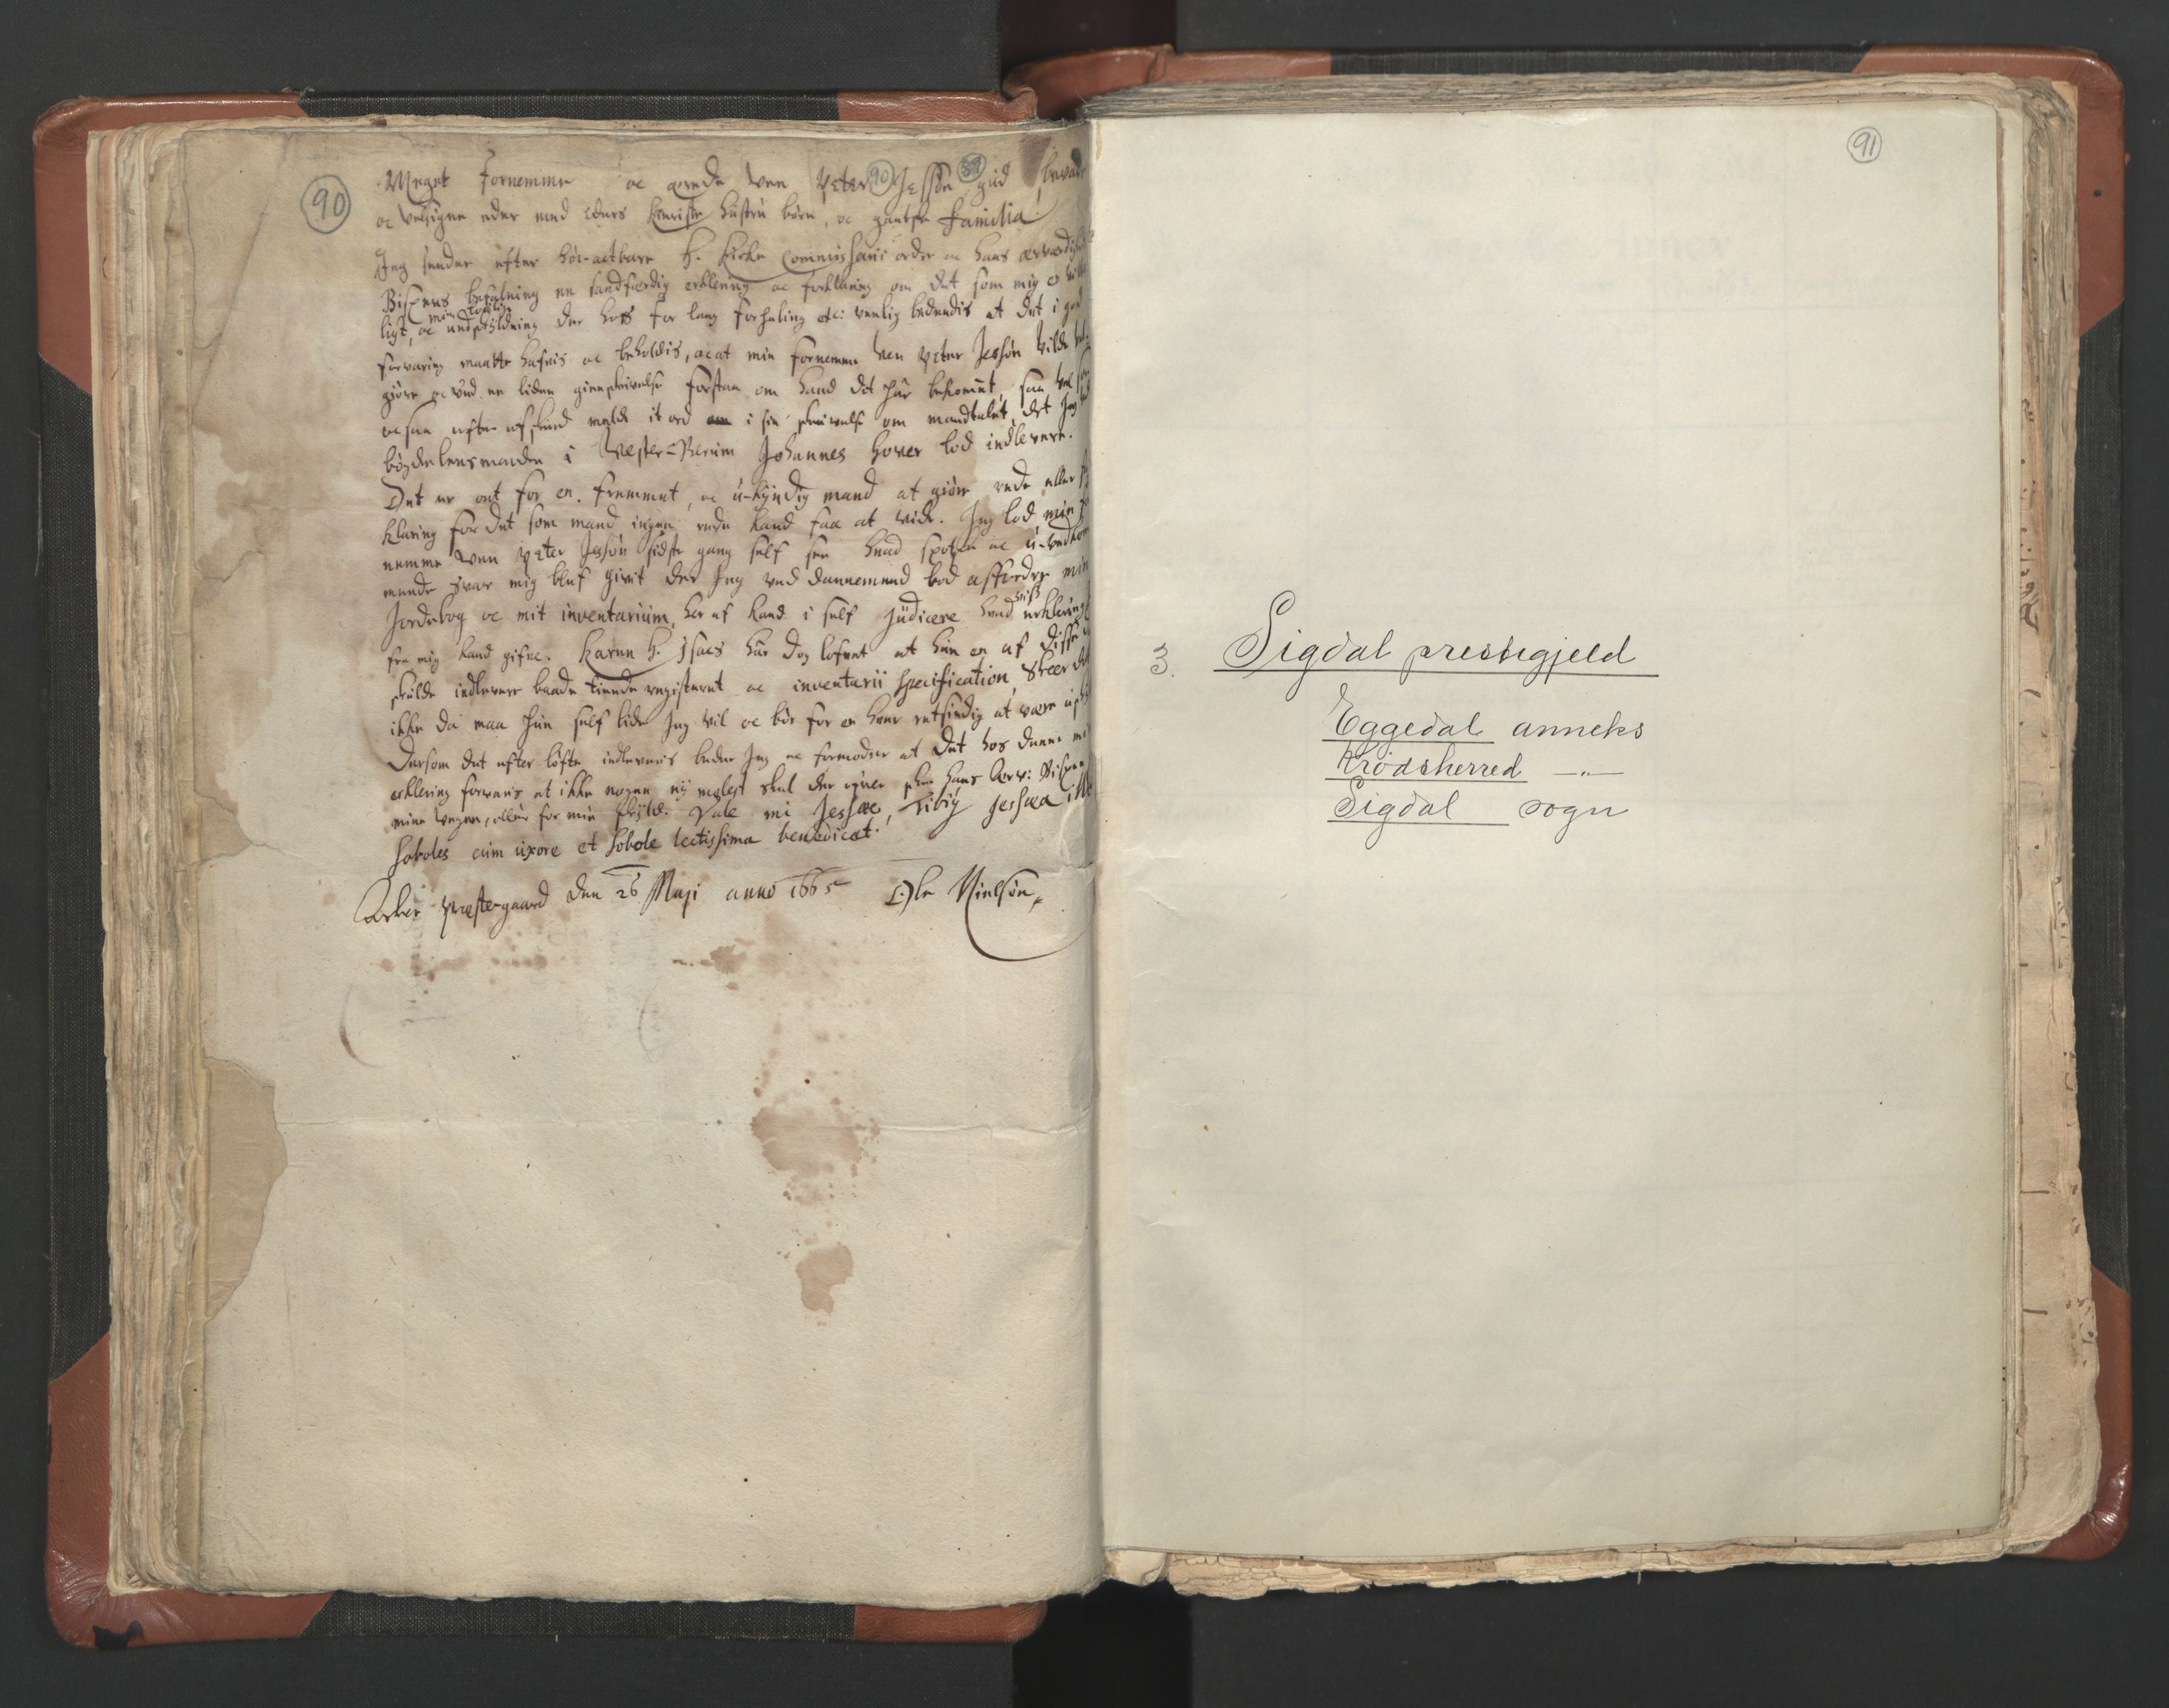 90
Meget fornemme oc ærede ven Peter 90 Jessøn 89 gud bevare
oc velsigne eder med eders kieriste hustru børn, oc gantske familia!
Jeg sender efter høi-actbare H. Kirke Commissarii order oc hans ærværdigheds
Bispens befalning en sandfærdig erklering oc forklaring om det som mig er
min
ligt, oc undskyldning der hoss for lang forhaling etc: venlig bedendis at det i god
forvaring maatte hafvis oc beholdis, oc at min fornemme ven Peter Jessøn vilde vel
giøre oc ved en liden gienskrivelse forstaa om hand det har bekommet, saa vel
ocsaa efter afskeed melde it ord i sin skrivelse om mandtalet, det Jeg
bøydelensmanden i Vester-Berum Johannes Hover lod indlevere.
Det er ont for en fremmet, oc u-kyndig mand at giøre rede eller
klaring for det som mand ingen rede kand faa at vide. Jeg lod min for
nemme ven Peter Jessøn sidste gang self see hvad spotske oc u-vedkom
mende svar mig blef givet der Jeg ved dannemænd lod affordre min
Jordebog oc mit inventarium, her af kand i self judicere hvad
viss
erklering
fra mig kand gifve. Karen H. Isacs har dog lofvet at hun en af disse
skulde indlevere baade tiende registeret oc inventarii specification, skeer det
ikke da maa hun self lide Jeg vil oc bør for en hver retsindig at være
Dersom det efter løfte indleveris beder Jeg oc formoder at det hos denne min
erklering forvaris at ikke nogen ny molest skal der ofver skee hans ærv: Bispen
mine vegne, eller for min skyld. Vale mi Jessæe, Tibiq Jessæa illa
soboles cum uxore et sobole lectissima benedicat.
Asker Præstegaard den 26 Maji anno 1665 Ole Nielsøn
91
3. Sigdal prestegjeld
Eggedal anneks
Krødsherred —„—
Sigdal sogn